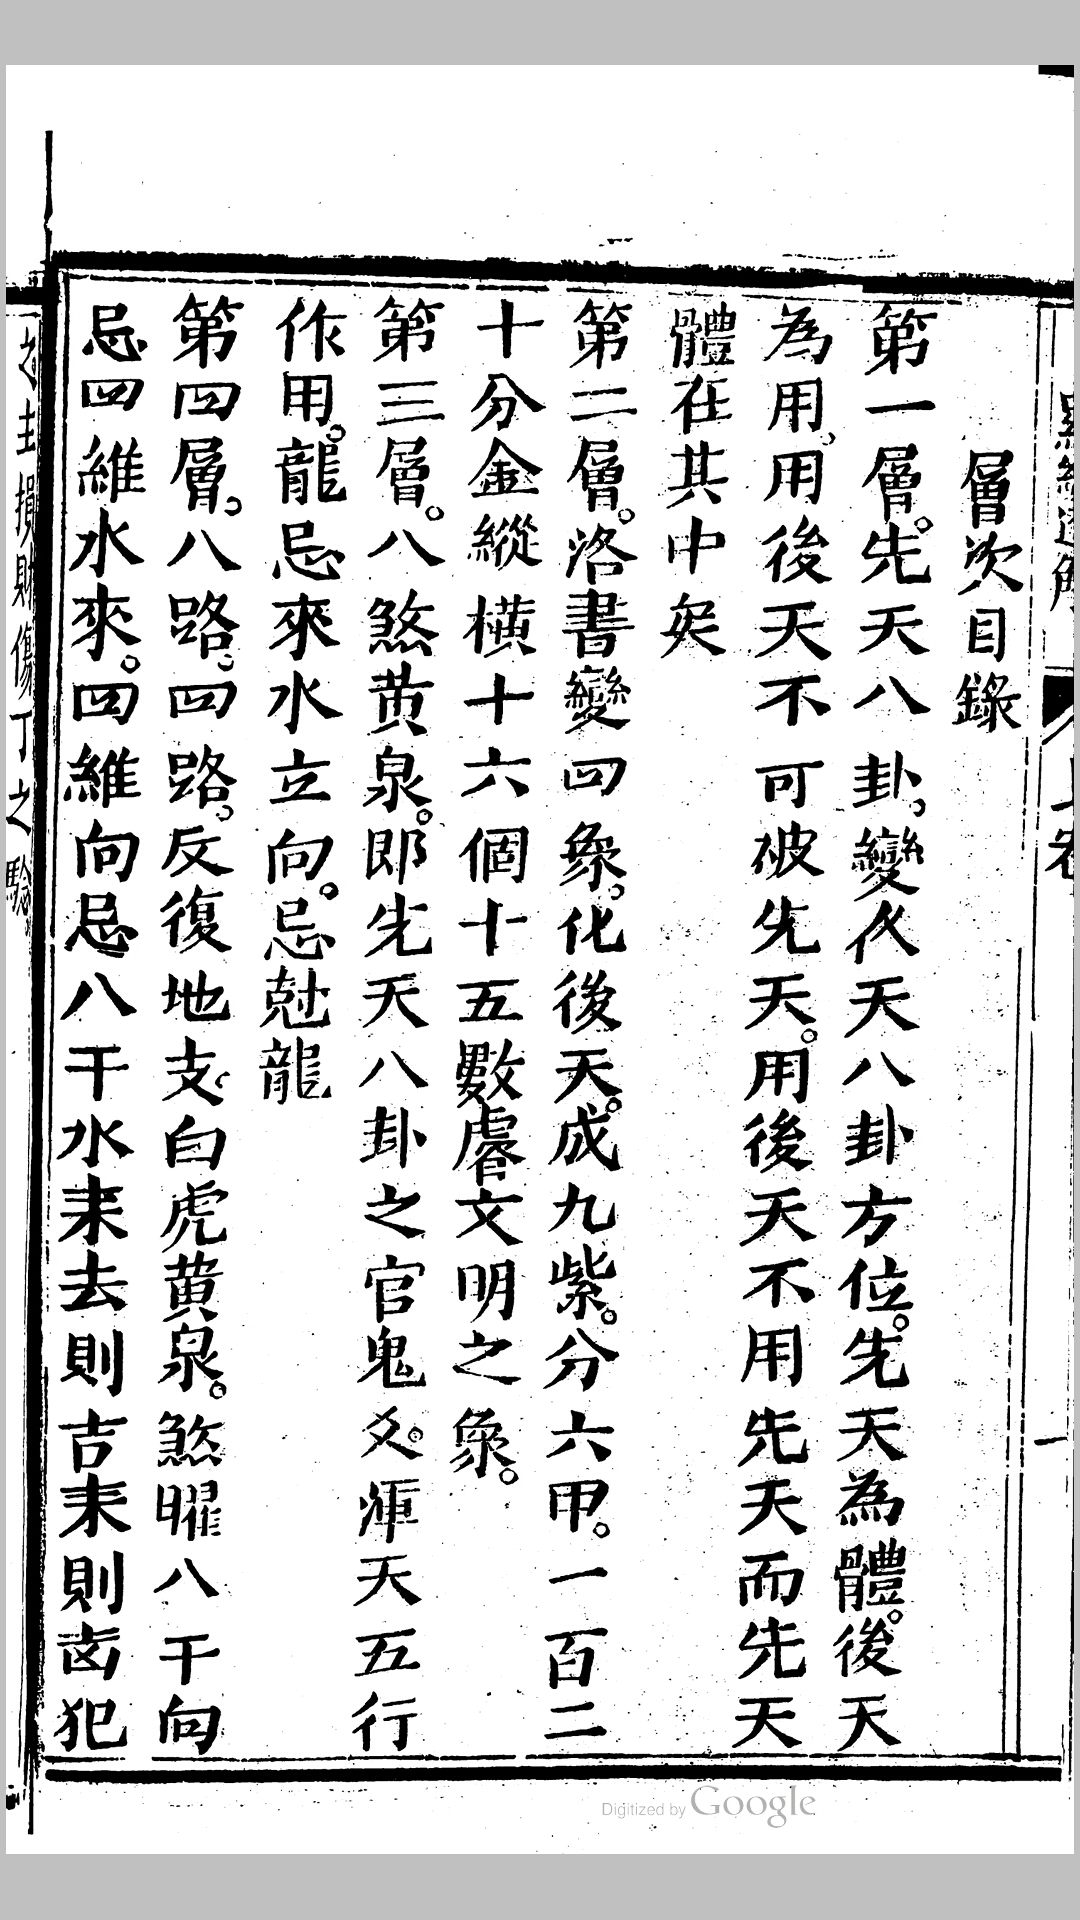 層次目錄
第一層。先天八卦。變後天八卦方位。先天為體。後天
為用。用後天不可破先天。用後天不用先天而先天
體在其中矣
第二層。洛書變四象。化後天。成九紫。分六甲。一百二
十分金縱橫十六個十五數。睿文明之象。
第三層。八煞黄泉。即先天八卦之官鬼爻。渾天五行
作用。龍忌來水立向。忌尅龍
第四層。八路。四路。反復地支白虎黄泉。煞曜八干向
忌四維水來。四維向忌八干水耒去則吉耒則凶犯
之主損財傷丁之驗。
Digitized by Google